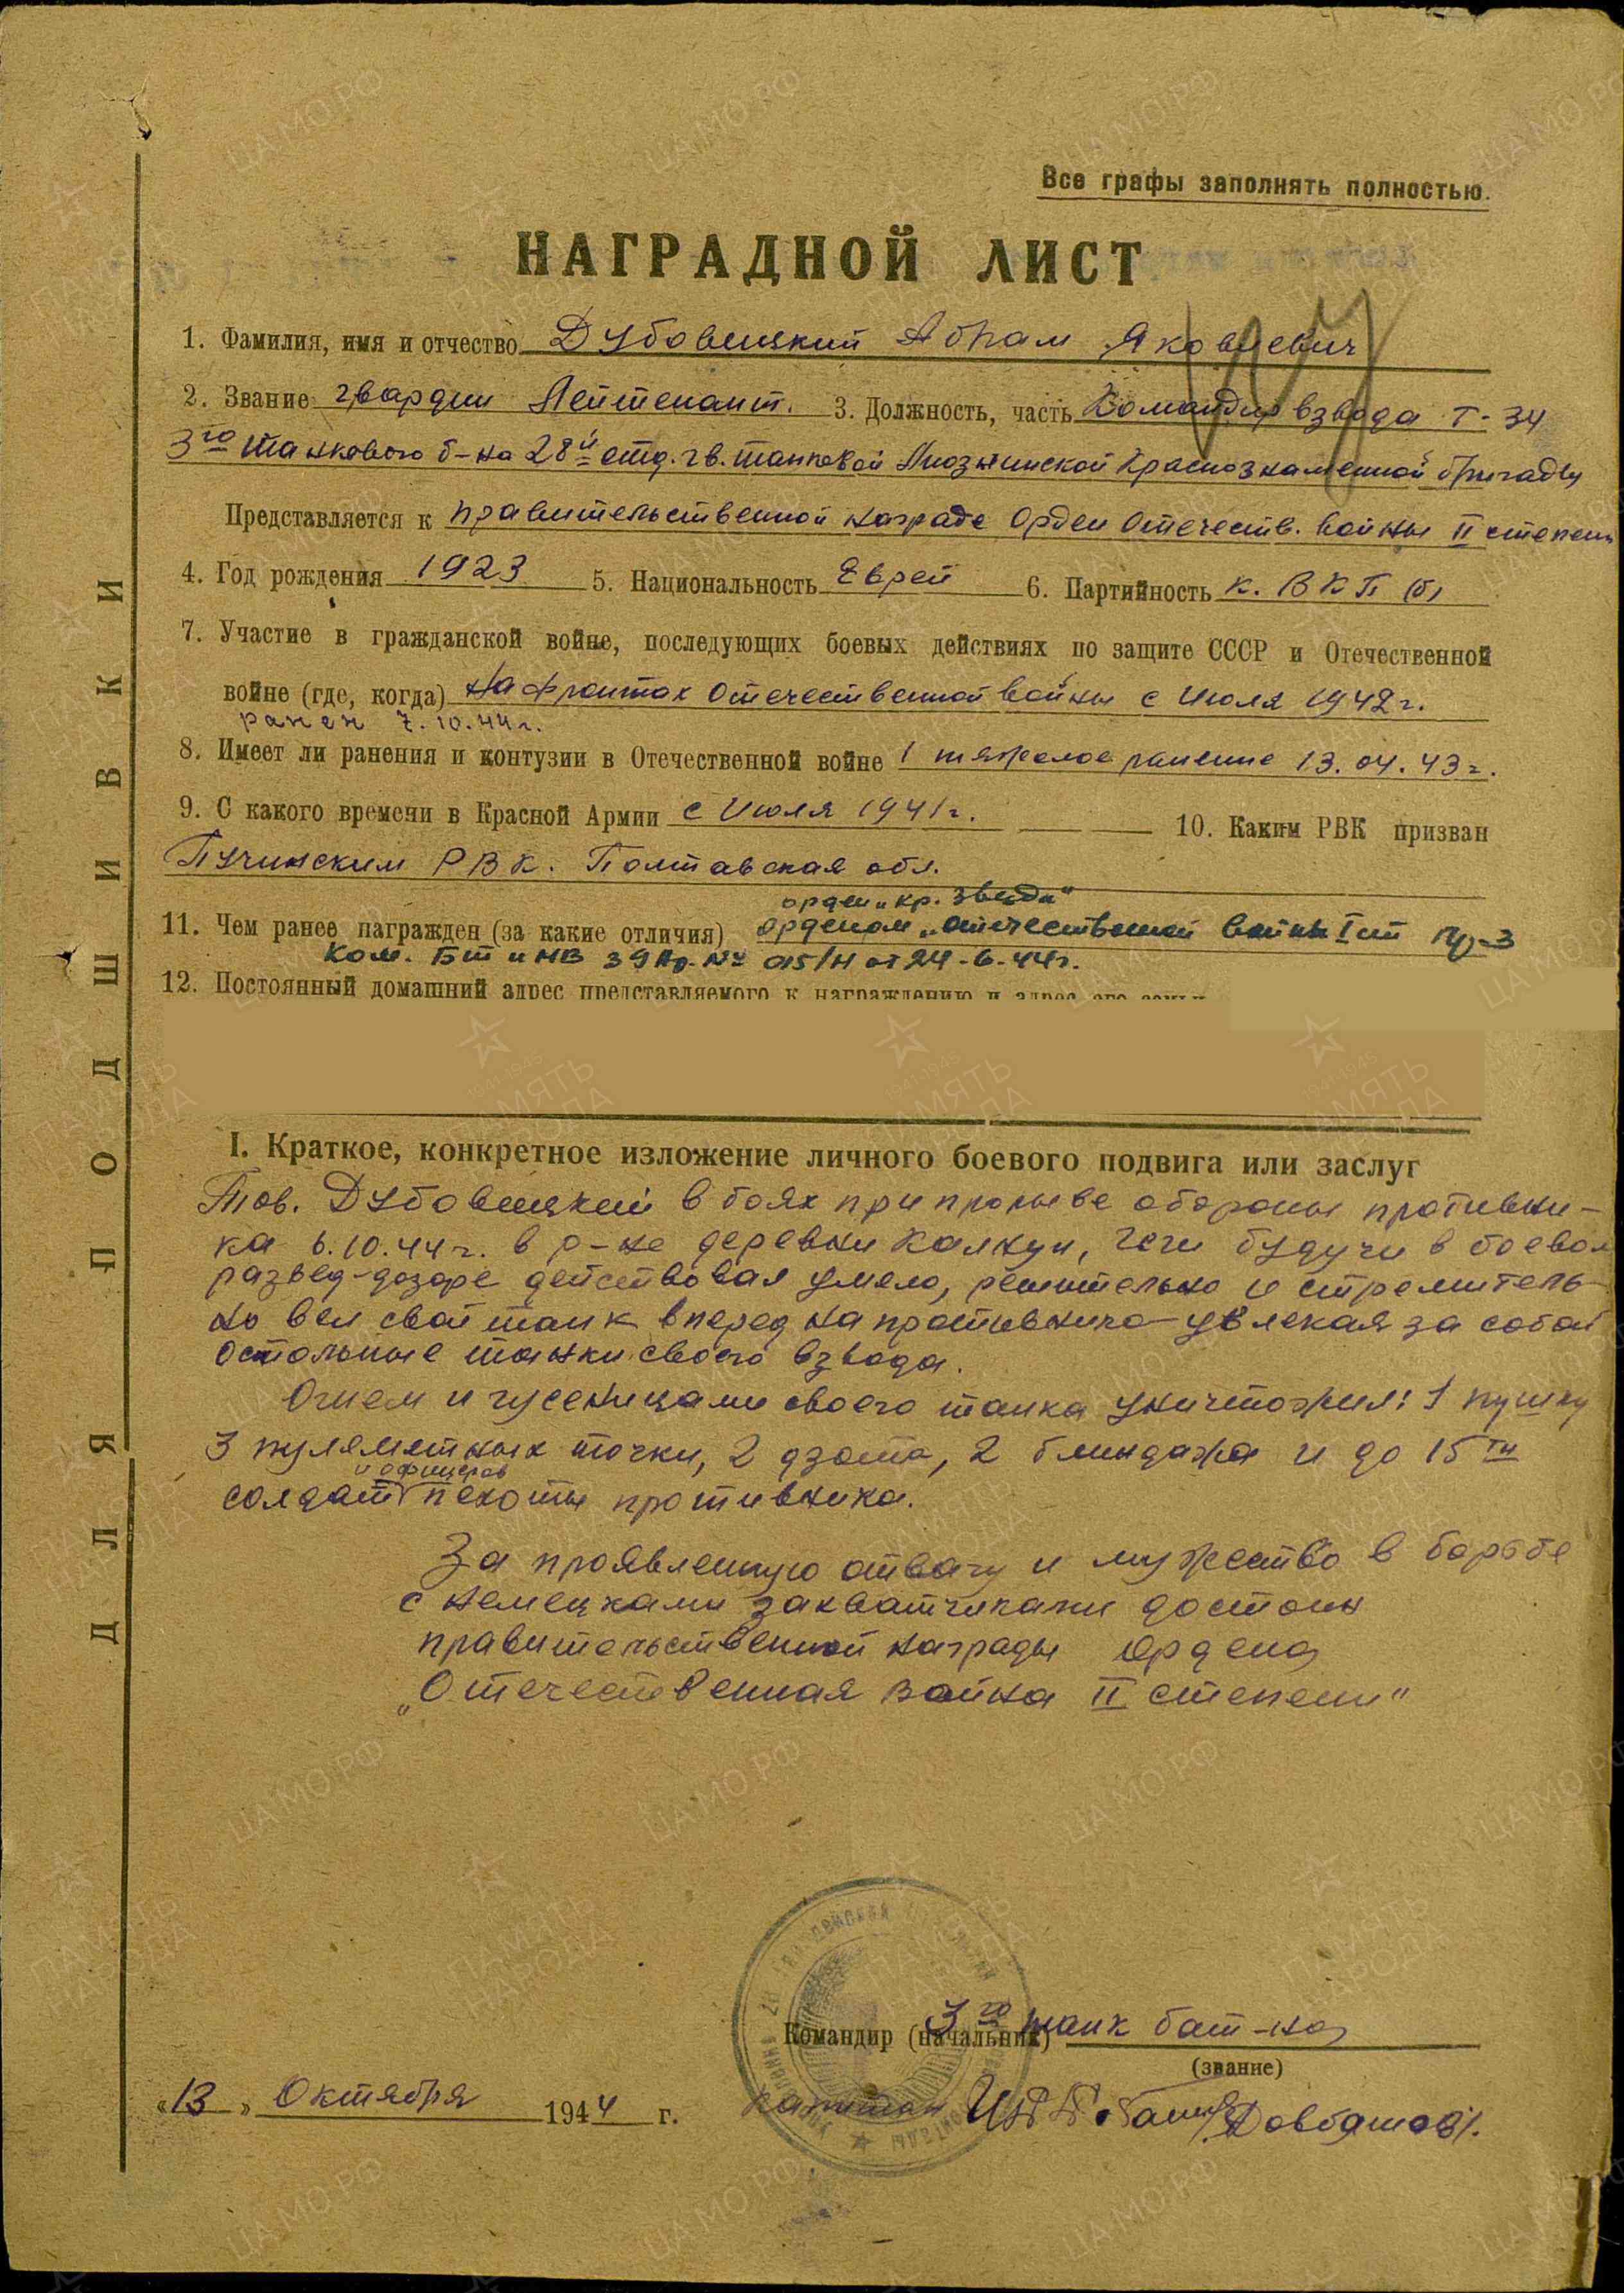 Все графы заполнять полностью.
НАГРАДНОЙ ЛИСТ
1. Фамилия, имя и отчество Дубовицкий Абрам Яковлевич
2. Звание гвардии Лейтенант. 3. Должность, часть Командир взвода Т-34
3го танкового б-на 28й отд. гв. танковой Лиозненской Краснознаменной бригады
Представляется к правительственной награде Орден Отечеств. войны II степени
4. Год рождения 1923 5. Национальность Еврей 6. Партийность к. ВКП(б)
7. Участие в гражданской войне, последующих боевых действиях по защите СССР и Отечественной
войне (где, когда) На фронтах Отечественной войны с Июля 1942 г.
ранен 7.10.44 г.
8. Имеет ли ранения и контузии в Отечественной войне 1 тяжелое ранение 13.04.43 г.
9. С какого времени в Красной Армии с Июля 1941 г. 10. Каким РВК призван
РВК. Полтавская обл.
орден „кр. Звезда"
11. Чем ранее награжден (за какие отличия) орденом „Отечественной войны I ст
Ком. БТ и МВ 39 Пр. № 015/Н от 24-6-44 г.
12. Постоянный домашний адрес представляемого к награждению и адрес его семьи
I. Краткое, конкретное изложение личного боевого подвига или заслуг
Тов. Дубовицкий в боях при прорыве обороны противни-
ка 6.10.44 г. в р-не деревни будучи в боевом
развед-дозоре действовал умело, решительно и стремитель-
но вел свой танк вперед на противника увлекая за собой
остальные танки своего взвода.
Огнем и гусеницами своего танка уничтожил: 1 пушку
3 пулеметных точки, 2 дзота, 2 блиндажа и до 15ти
и офицеров
солдат пехоты противника.
За проявленную отвагу и мужество в борьбе
с немецкими захватчиками достоин
правительственной награды ордена
„Отечественная война II степени"
Командир (начальник) 3го танк бат-на
(звание)
капитан Довбашов
«13» Октября 1944 г.
ДЛЯ ПОДШИВКИ
ЦАМО РФ
ПАМЯТЬ НАРОДА
1941-1945